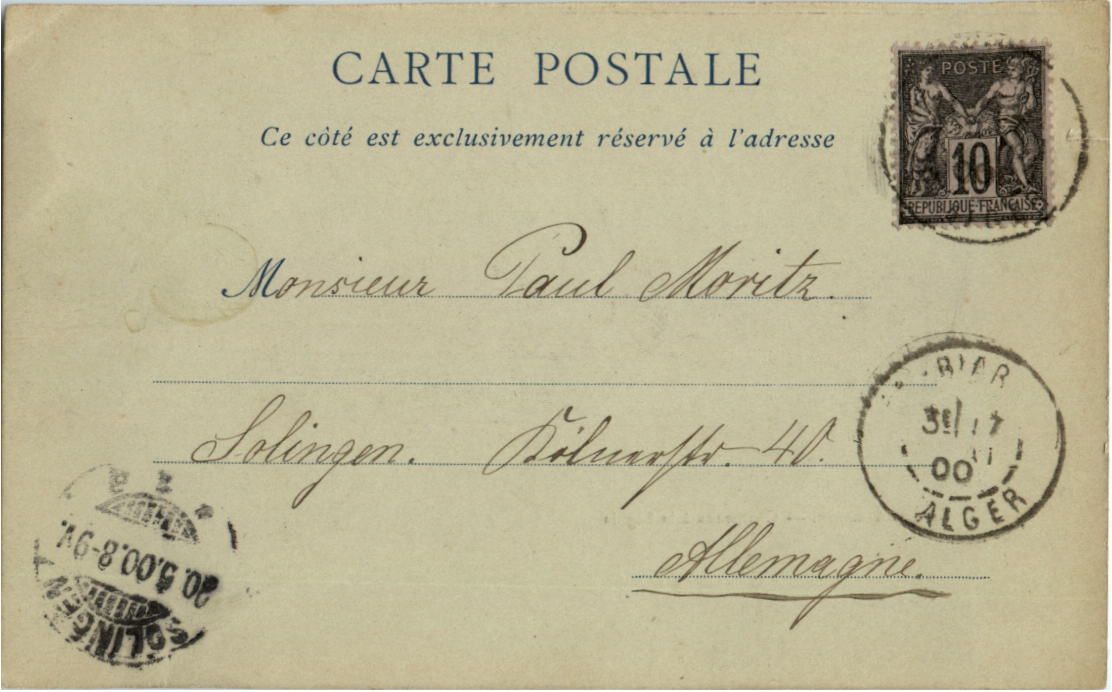 CARTE POSTALE
Ce côté est exclusivement réservé à l'adresse
POSTE
10
REPUBLIQUE FRANÇAISE
Monsieur Paul Moritz.
Solingen. Kölnerstr. 40.
Allemagne.
BIAR
3E 17
00
ALGER
20.5.00.8-9V.
SOLINGEN